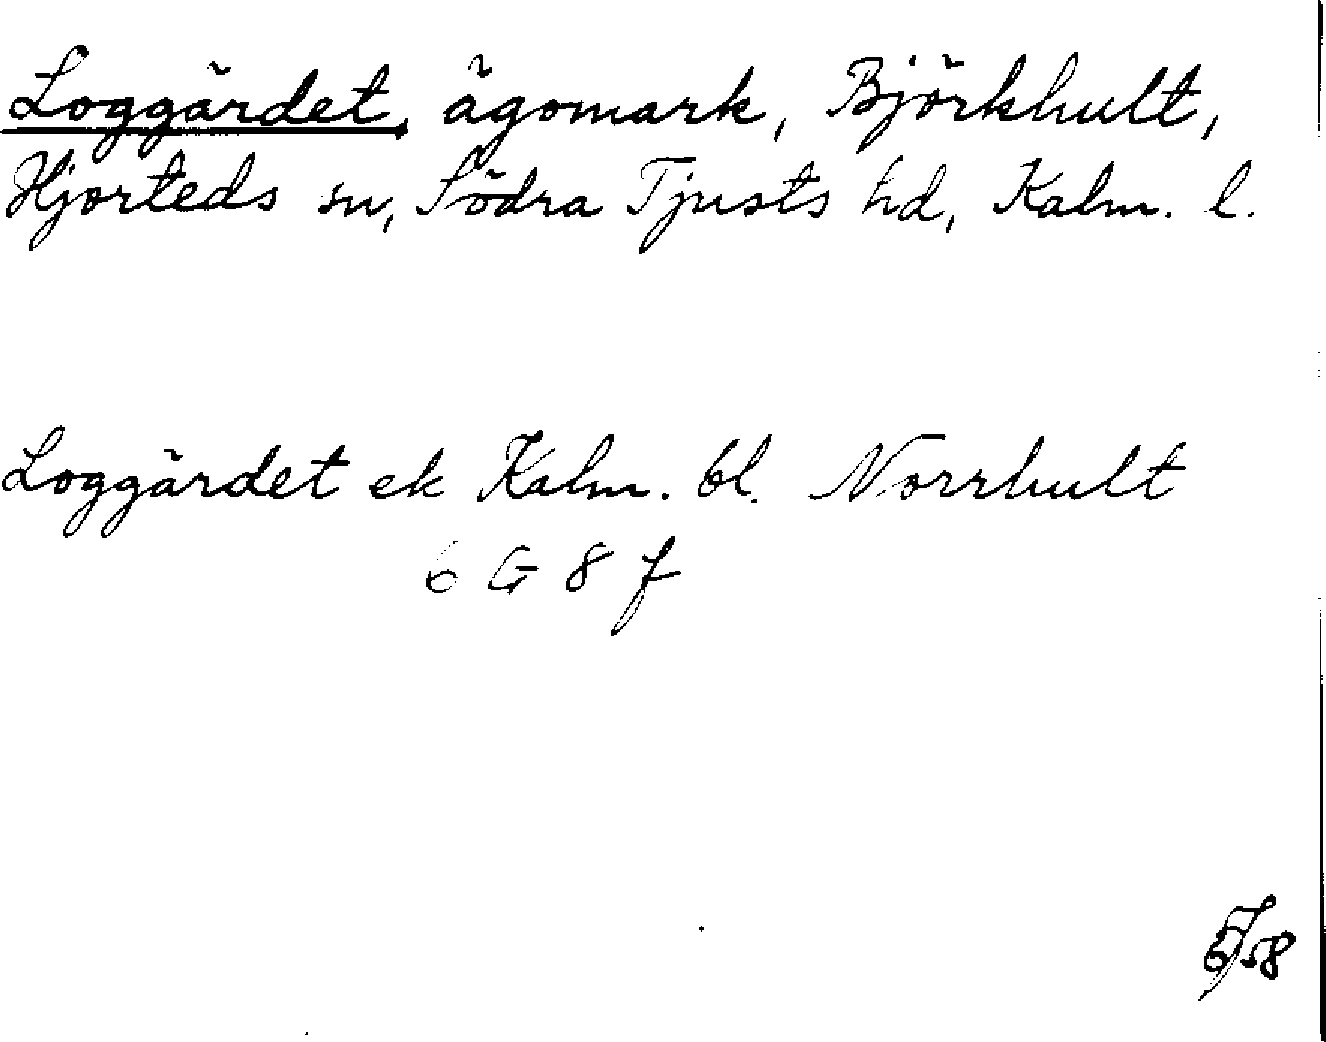 Loggärdet, ägomark, Björkhult,
Hjorteds sn, Södra Tjusts hd, Kalm. l.
Loggärdet ek Kalm. bl. Norrhult
6 G 8 f